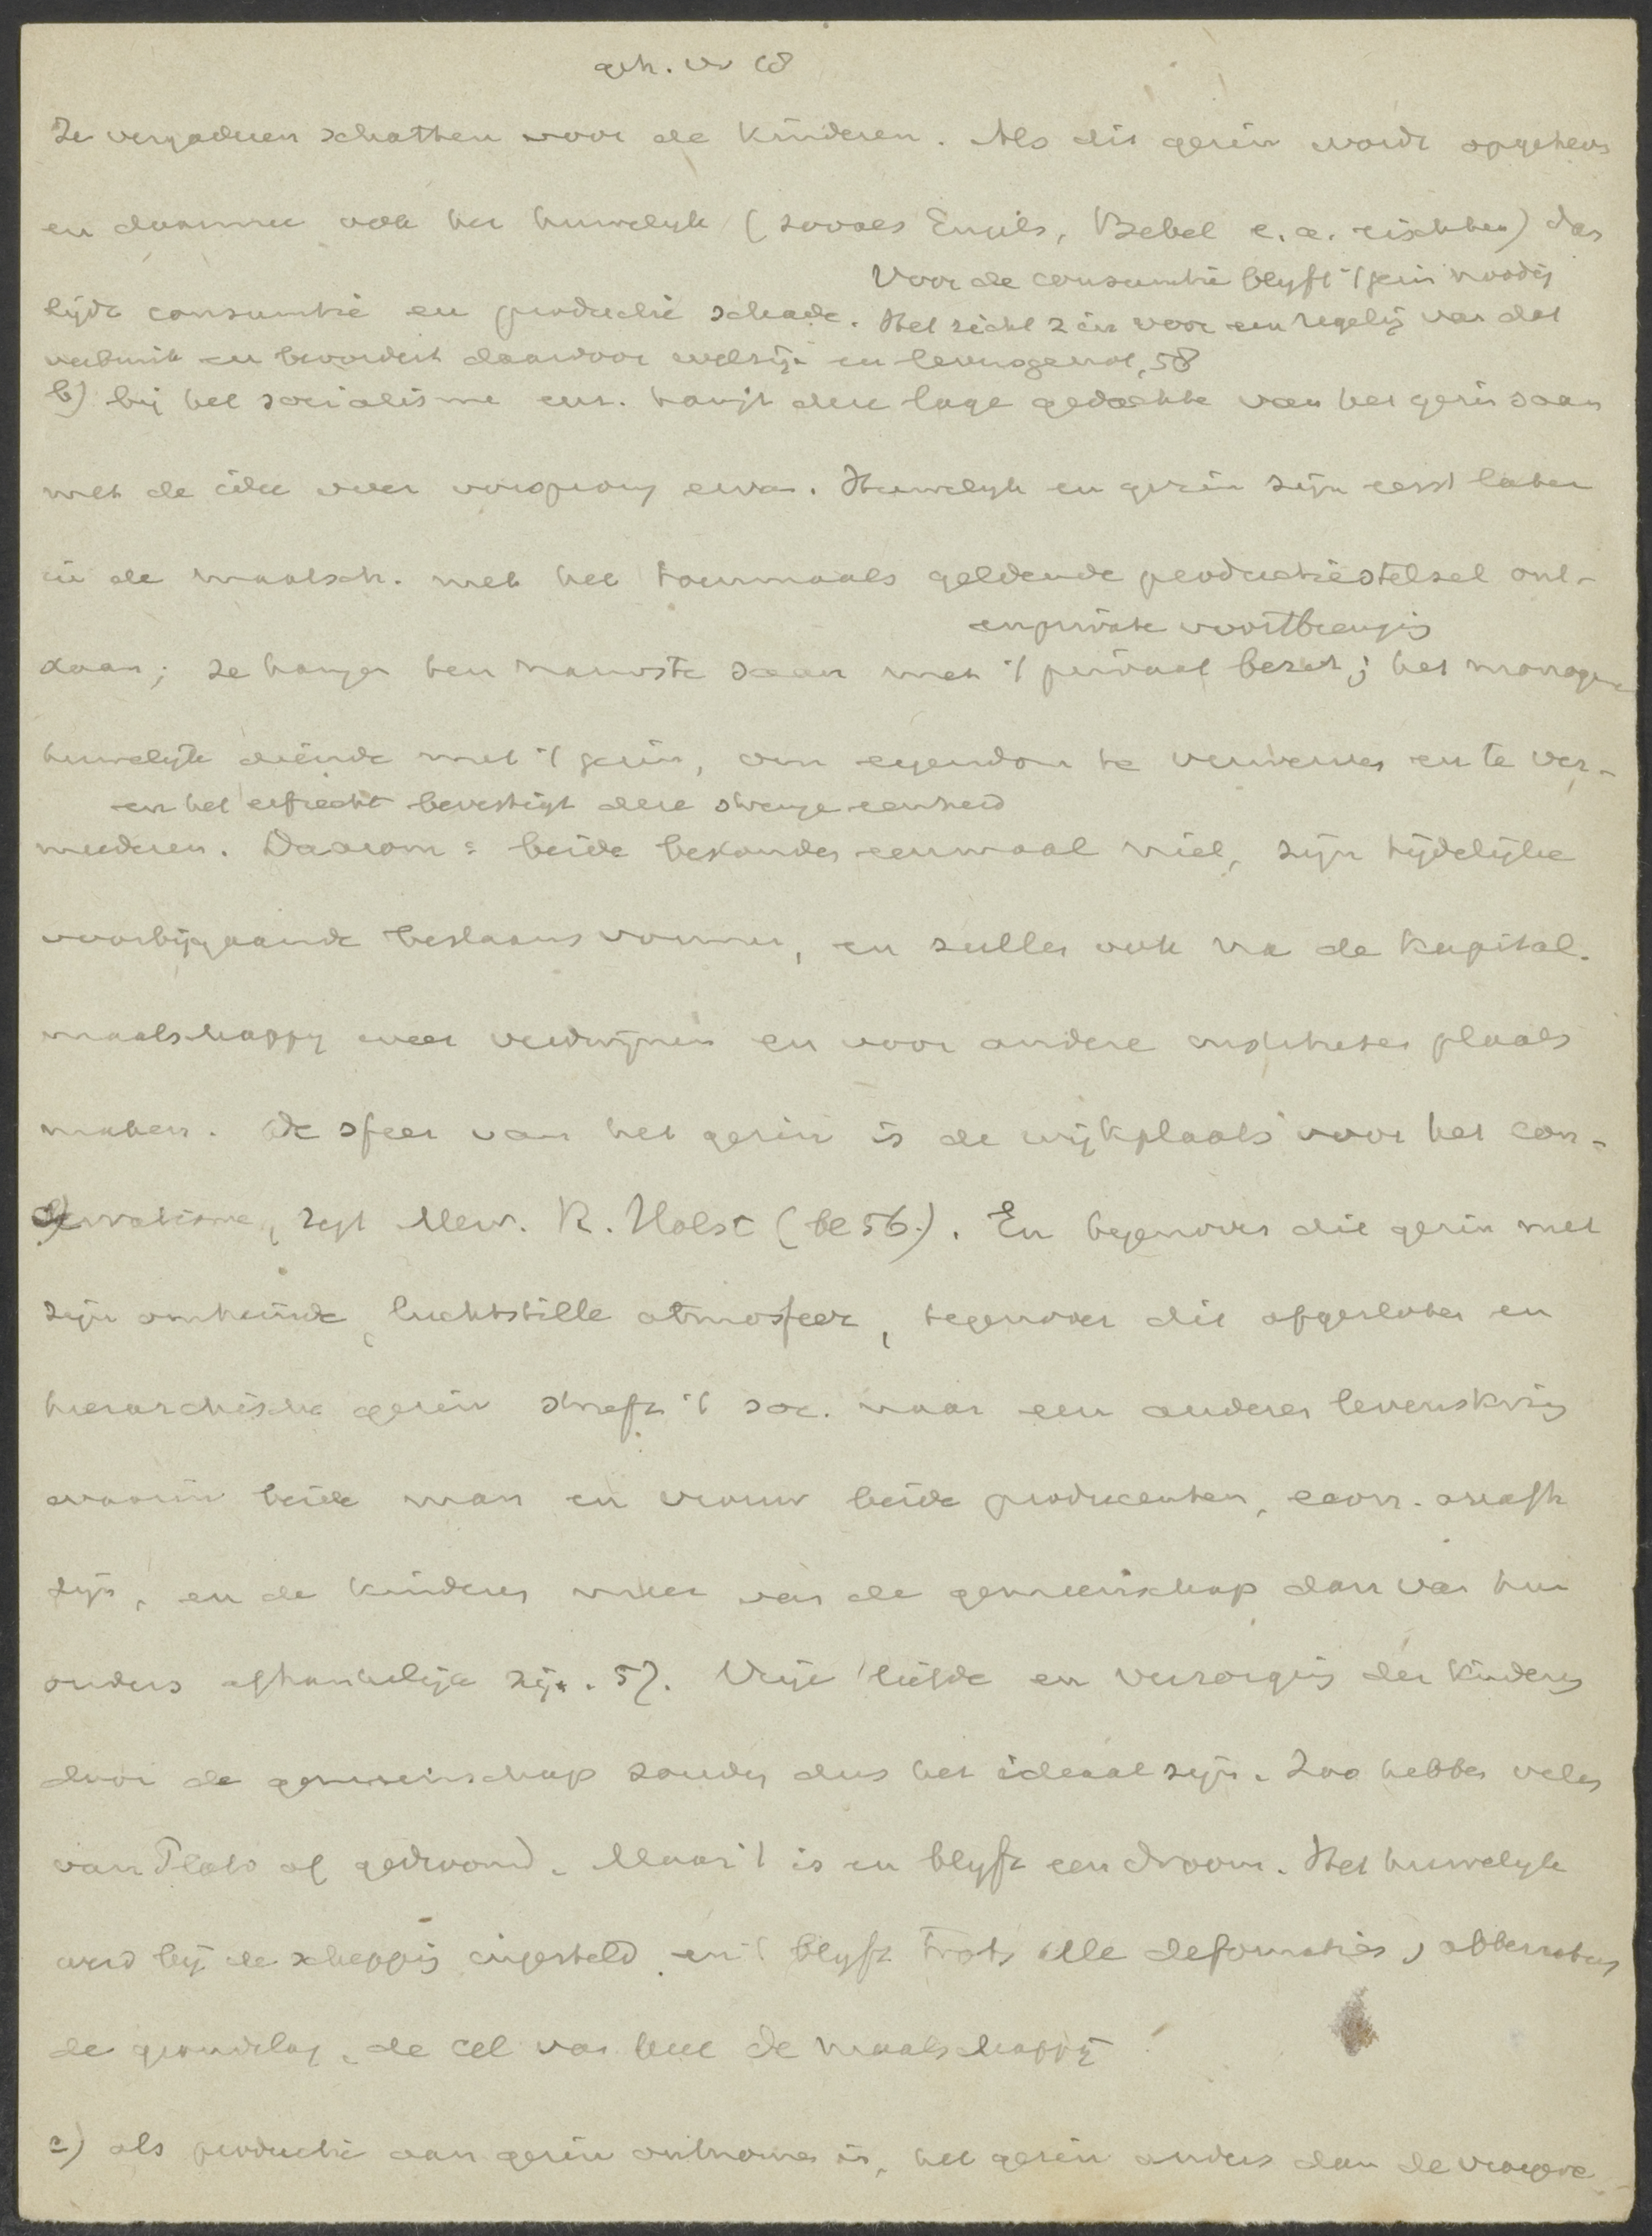 geh. v. 68
Ze vergaderen schatten voor de kinderen. Als dit gezin wordt opgeheven
en daarmee ook het huwelijk (zooals Engels, Bebel e.a. eischten) dan
Voor de consumtie blyft 't gezin noodig
lijdt consumtie en productie schade. Het richt zin voor een regelig van dat
verbruik en bevordert daardoor welzijn en levensgenot, 58
b) bij het socialisme enz. hangt deze lage gedachte van het gezin saam
met de idee over oorsprong ervan. Huwelyk en gezin zijn eerst later
in de maatsch. met het toenmaals geldende productiestelsel ont-
en private voortbrengig
staan; ze hangen ten nauwste saam met 't privaat bezit; het monogame
huwelijk diende met 't gezin, om eigendom te verwerven en te ver-
en het erfrecht bevestigt deze strenge eenheid
meederen. Daarom: beide bestonden eenmaal niet, zijn tijdelijke
voorbijgaande bestaansvormen, en zullen ook na de kapital.
maatschappy weer verdwijnen en voor andere plaats
maken. De sfeer van het gezin is de wijkplaats voor het con-
servatisme, zegt Mevr. R. Holst (bl 56.). En tegenover dit gezin met
zijn omheinde, luchtstille atmosfeer, tegenover dit afgesloten en
hierarchische gezin streeft 't soc. naar een anderen levenskring
waarin beide man en vrouw beide producenten, econ. onafh
zijn, en de kinderen meer van de gemeenschap dan van hun
ouders afhankelijk zijn. 57. Vrije liefde en verzorging der kinderen
door de gemeenschap zouden dus het ideaal zijn. Zoo hebben velen
van Plato af gedroomd. Maar 't is en blyft een droom. Het huwelyk
werd bij de schepping ingesteld en 't blyft trots alle deformaties, abberraties
de grondslag, de cel van heel de maatschappij
c) als productie aan gezin ontnomen is, het gezin anders dan de vroegere